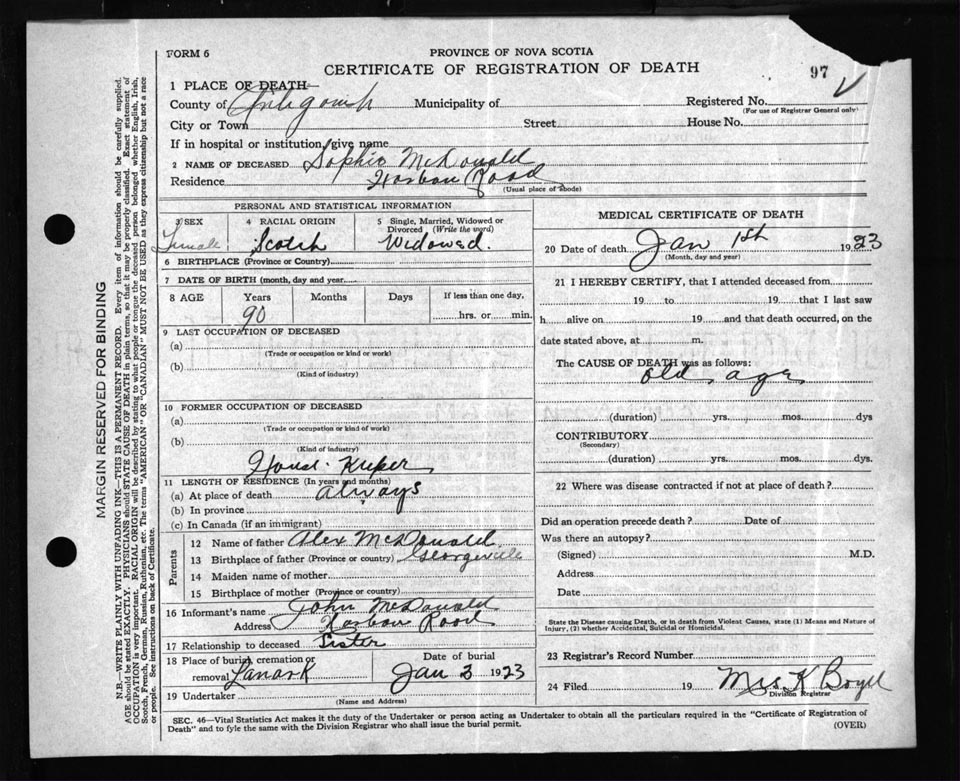 FORM 6
PROVINCE OF NOVA SCOTIA
97
CERTIFICATE OF REGISTRATION OF DEATH
1 PLACE OF DEATH—
County of Antigonish Municipality of Registered No.
(For use of Registrar General only)
City or Town Street House No.
If in hospital or institution, give name
2 NAME OF DECEASED Sophia McDonald
Residence Harbour Road
(Usual place of abode)
PERSONAL AND STATISTICAL INFORMATION
3 SEX 4 RACIAL ORIGIN 5 Single, Married, Widowed or Divorced (Write the word)
Female Scotch Widowed.
6 BIRTHPLACE (Province or Country)
7 DATE OF BIRTH (month, day and year)
8 AGE Years Months Days If less than one day,
90 hrs. or min.
9 LAST OCCUPATION OF DECEASED
(a)
(Trade or occupation or kind or work)
(b)
(Kind of industry)
10 FORMER OCCUPATION OF DECEASED
(a)
(Trade or occupation or kind of work)
(b)
(Kind of industry)
House-Keeper
11 LENGTH OF RESIDENCE (In years and months)
(a) At place of death always
(b) In province
(c) In Canada (if an immigrant)
Parents
12 Name of father Alex McDonald
13 Birthplace of father (Province or country) Georgeville
14 Maiden name of mother
15 Birthplace of mother (Province or country)
16 Informant's name John McDonald
Address Harbour Road
17 Relationship to deceased Sister
18 Place of burial, cremation or removal Lanark
Date of burial
Jan 3 1923
19 Undertaker
(Name and Address)
MEDICAL CERTIFICATE OF DEATH
20 Date of death Jan 1st 1923
(Month, day and year)
21 I HEREBY CERTIFY, that I attended deceased from
19 to 19 that I last saw
h alive on 19 and that death occurred, on
date stated above, at m.
The CAUSE OF DEATH was as follows:
old age
(duration) yrs. mos. dys
CONTRIBUTORY
(Secondary)
(duration) yrs. mos. dys.
22 Where was disease contracted if not at place of death?
Did an operation precede death? Date of
Was there an autopsy?
(Signed) M.D.
Address
Date
State the Disease causing Death, or in death from Violent Causes, state (1) Means and Nature of
Injury, (2) whether Accidental, Suicidal or Homicidal.
23 Registrar's Record Number
24 Filed 19 Mrs K Boyd
Division Registrar
SEC. 46—Vital Statistics Act makes it the duty of the Undertaker or person acting as Undertaker to obtain all the particulars required in the "Certificate of Registration of
Death" and to fyle the same with the Division Registrar who shall issue the burial permit.
(OVER)
MARGIN RESERVED FOR BINDING
N.B.—WRITE PLAINLY WITH UNFADING INK—THIS IS A PERMANENT RECORD. Every item of information should be carefully supplied.
AGE should be stated EXACTLY. PHYSICIANS should STATE CAUSE OF DEATH in plain terms, so that it may be properly classified. Exact statement of
OCCUPATION is very important. RACIAL ORIGIN will be described by stating to what people or tongue the deceased person belonged whether English, Irish,
Scotch, French, German, Russian, Ruthenian, etc. The terms "AMERICAN" OR "CANADIAN" MUST NOT BE USED as they express citizenship but not a race
or people. See instructions on back of Certificate.